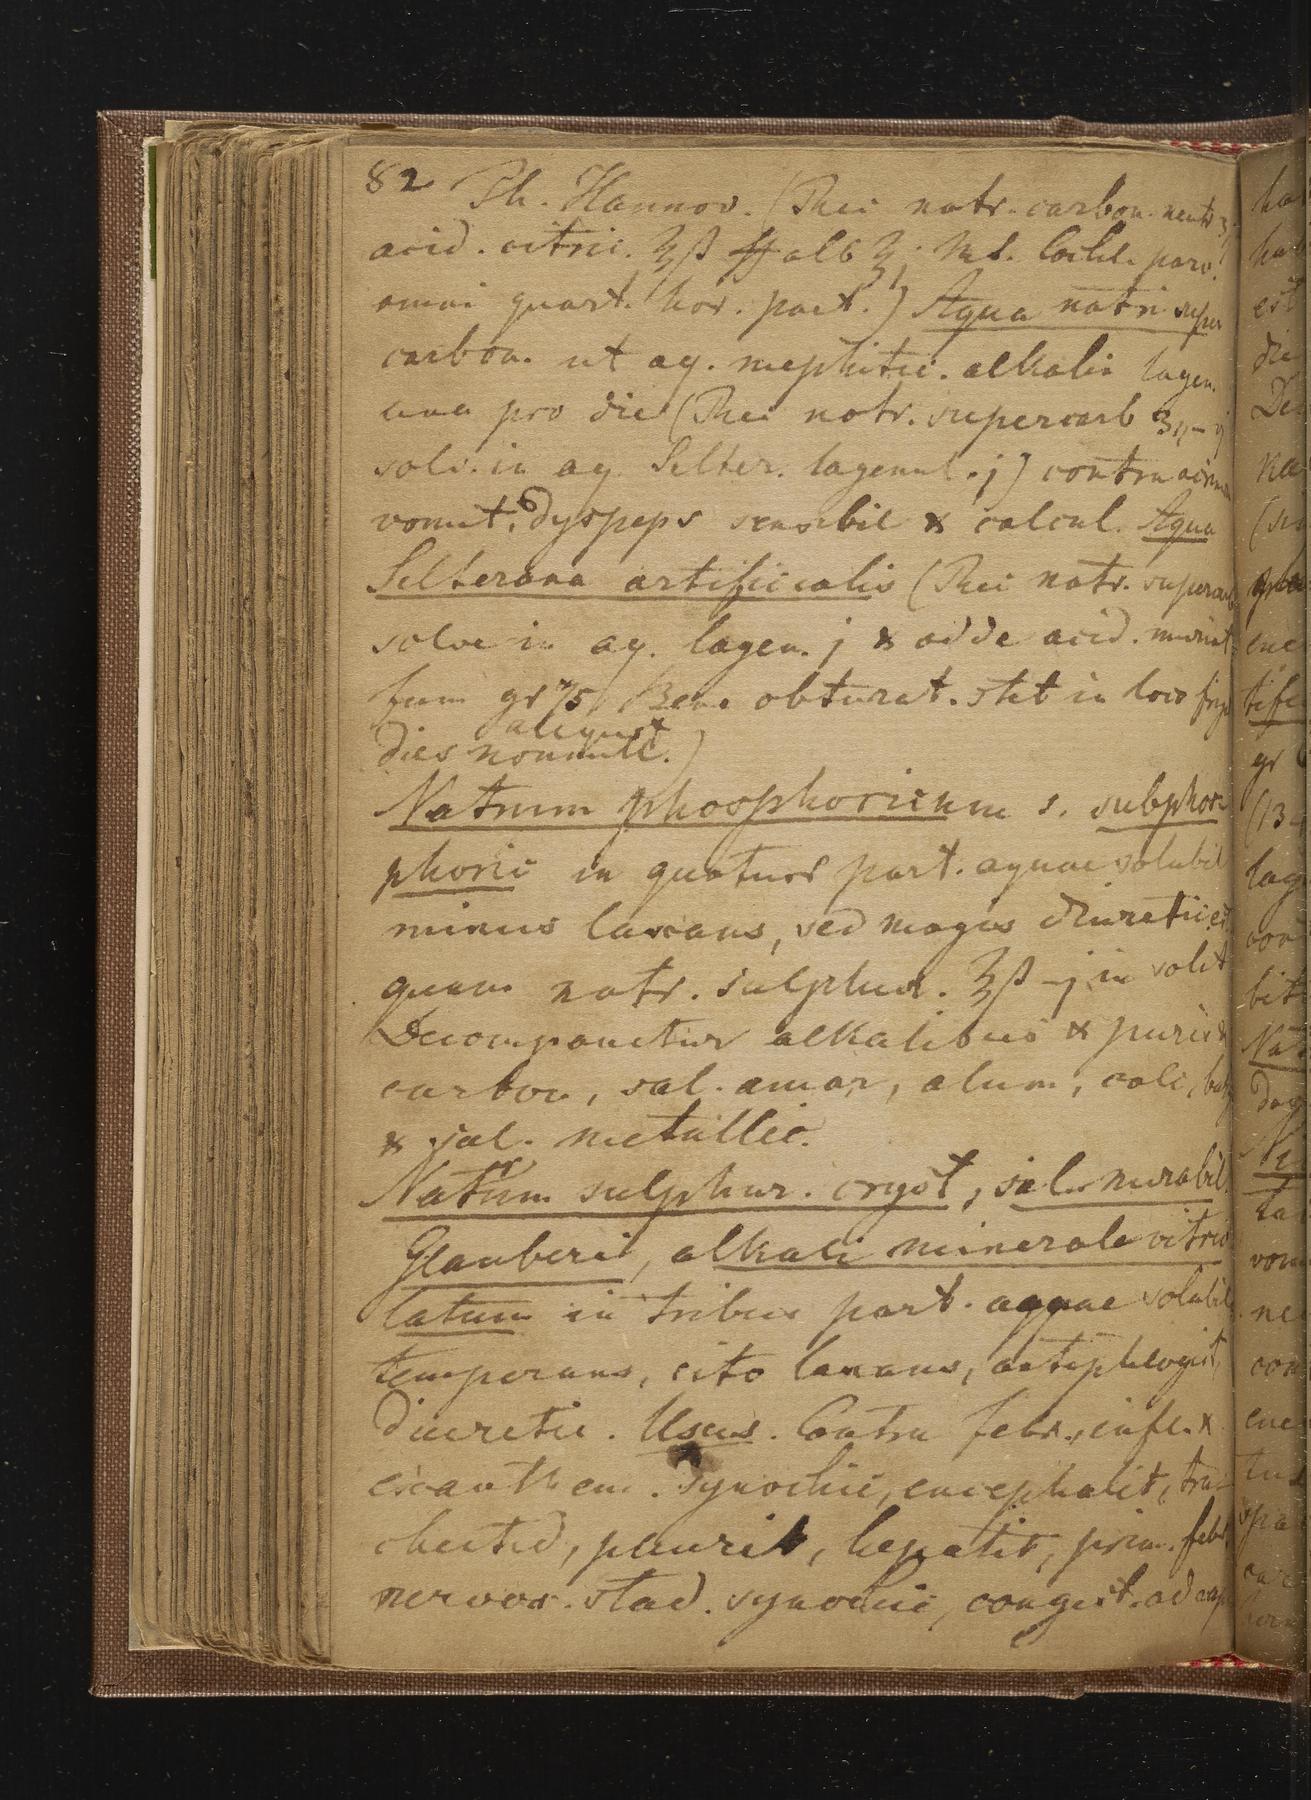 82 Ph. Hannov. (Rei natr. carbon. neutr ʒj
acid. citric. ℥ß alb ℥j M.S. Cochl. parv.
omni quart. hor. part.) Aqua natri super
carbon. ut aq. mephitic. alkalin lagen.
una pro die (Rei natr. supercarb ʒij–j
solv. in aq. Selter. lagenul. j) contra
vomit. dyspeps sensibil & calcul. Aqua
Selterana artificialis (Rei natr. supercarb
solve in aq. lagen. j & adde acid. muriat
tum gr 75 Bene obturat. stet in loco frig
aliquot
dies nonnull.)
Natrum phosphoricum s. subphos-
phoric in quatuor part. aquae solubil
minus laxans, sed magis diuretic. est
quam natr. sulphur. ℥ß–j in solut
Decomponitur alkalibus & puris &
carbon, sal. amar, alum, calc, bar
& sal. metallic.
Natrum sulphur. cryst, sal. mirabil.
Glauberi, alkali minerale vitrio
latum in tribus part. aquae solubile
temperans, cito laxans, antiphlogist,
diuretic. Usus. Contra febr. infl. &
exanthem. synochic, encephalit, tra-
cheitid, pleurit, hepatit, prim. febr.
nervos. stad. synochic, congest. ad cap